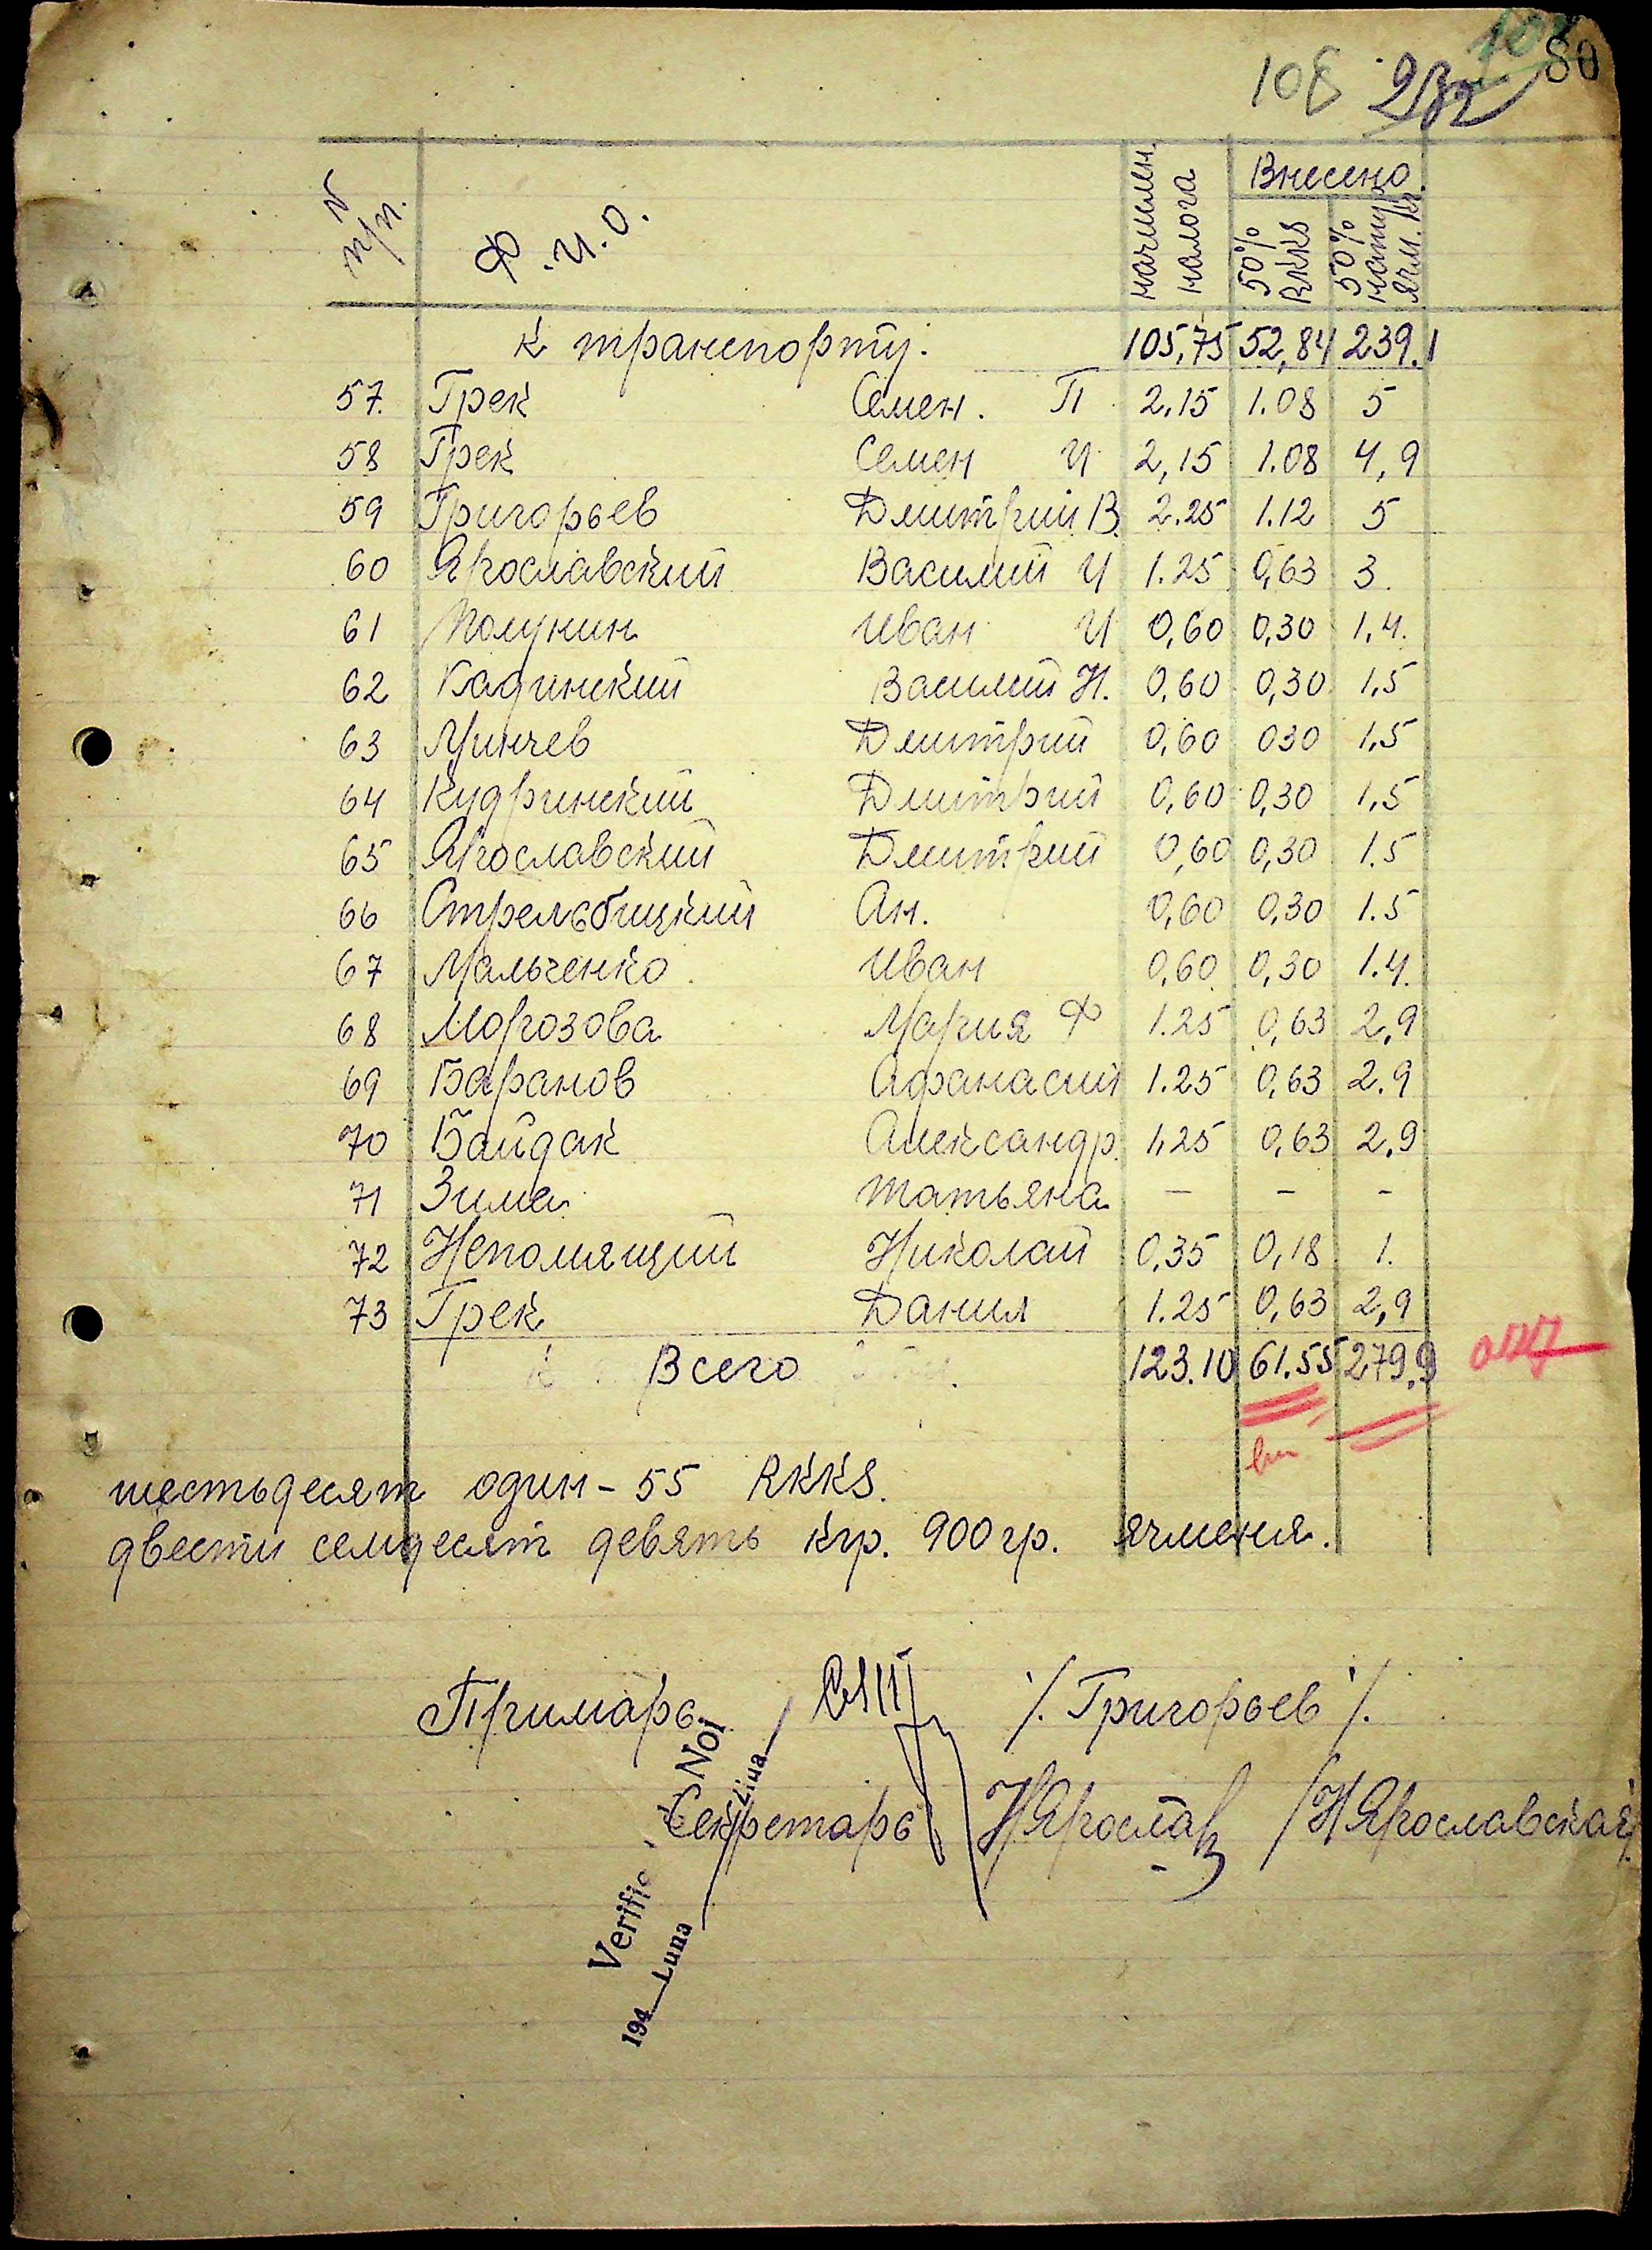 108 232 80
N п/п. Ф.И.О. начислен. налога Внесено.
50% RKKS 50% натур. ячм. кг
к транспорту. 105,75 52,84 239.1
57. Грек Семен. П 2,15 1.08 5
58 Грек Семен И 2,15 1.08 4,9
59 Григорьев Дмитрий В. 2.25 1.12 5
60 Ярославский Василий И 1.25 0,63 3.
61 Полунин Иван И 0,60 0,30 1,4.
62 Кадинский Василий Н. 0,60 0,30 1,5
63 Минчев Дмитрий 0,60 030 1,5
64 Кудринский Дмитрий 0,60 0,30 1,5
65 Ярославский Дмитрий 0,60 0,30 1.5
66 Стрельбицкий Ан. 0,60 0,30 1.5
67 Мальченко Иван 0,60 0,30 1.4.
68 Морозова Мария Ф 1.25 0,63 2,9
69 Баранов Афанасий 1.25 0,63 2.9
70 Байдак Александр. 1,25 0,63 2,9
71 Зима Татьяна - - -
72 Непомящий Николай 0,35 0,18 1.
73 Грек Данил 1.25 0,63 2,9
Всего 123.10 61.55 279.9
шестьдесят один - 55 RKKS.
двести семдесят девять кгр. 900 гр. ячменя.
Примарь /. Григорьев /.
Секретарь НЯрослав /НЯрославская/.
Verific Noi
194 Luna Ziua